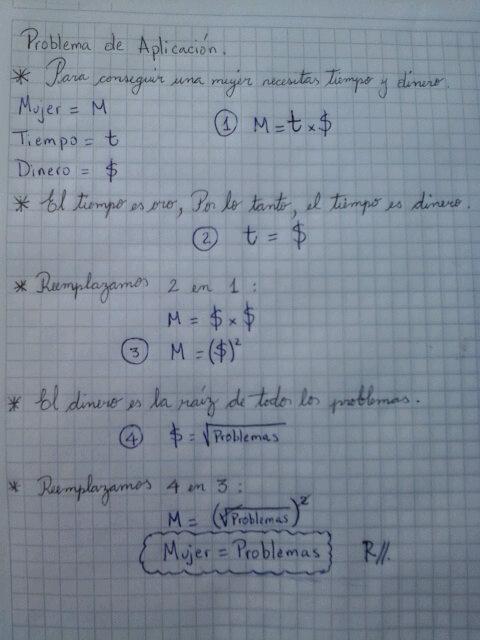 Problema de Aplicación.
* Para conseguir una mujer necesitas tiempo y dinero.
Mujer = M
① M = t × $
Tiempo = t
Dinero = $
* El tiempo es oro, Por lo tanto, el tiempo es dinero.
② t = $
* Reemplazamos 2 en 1 :
M = $ × $
③ M = ($)²
* El dinero es la raíz de todos los problemas.
④ $ = √Problemas
* Reemplazamos 4 en 3 :
M = (√Problemas)²
Mujer = Problemas R//.